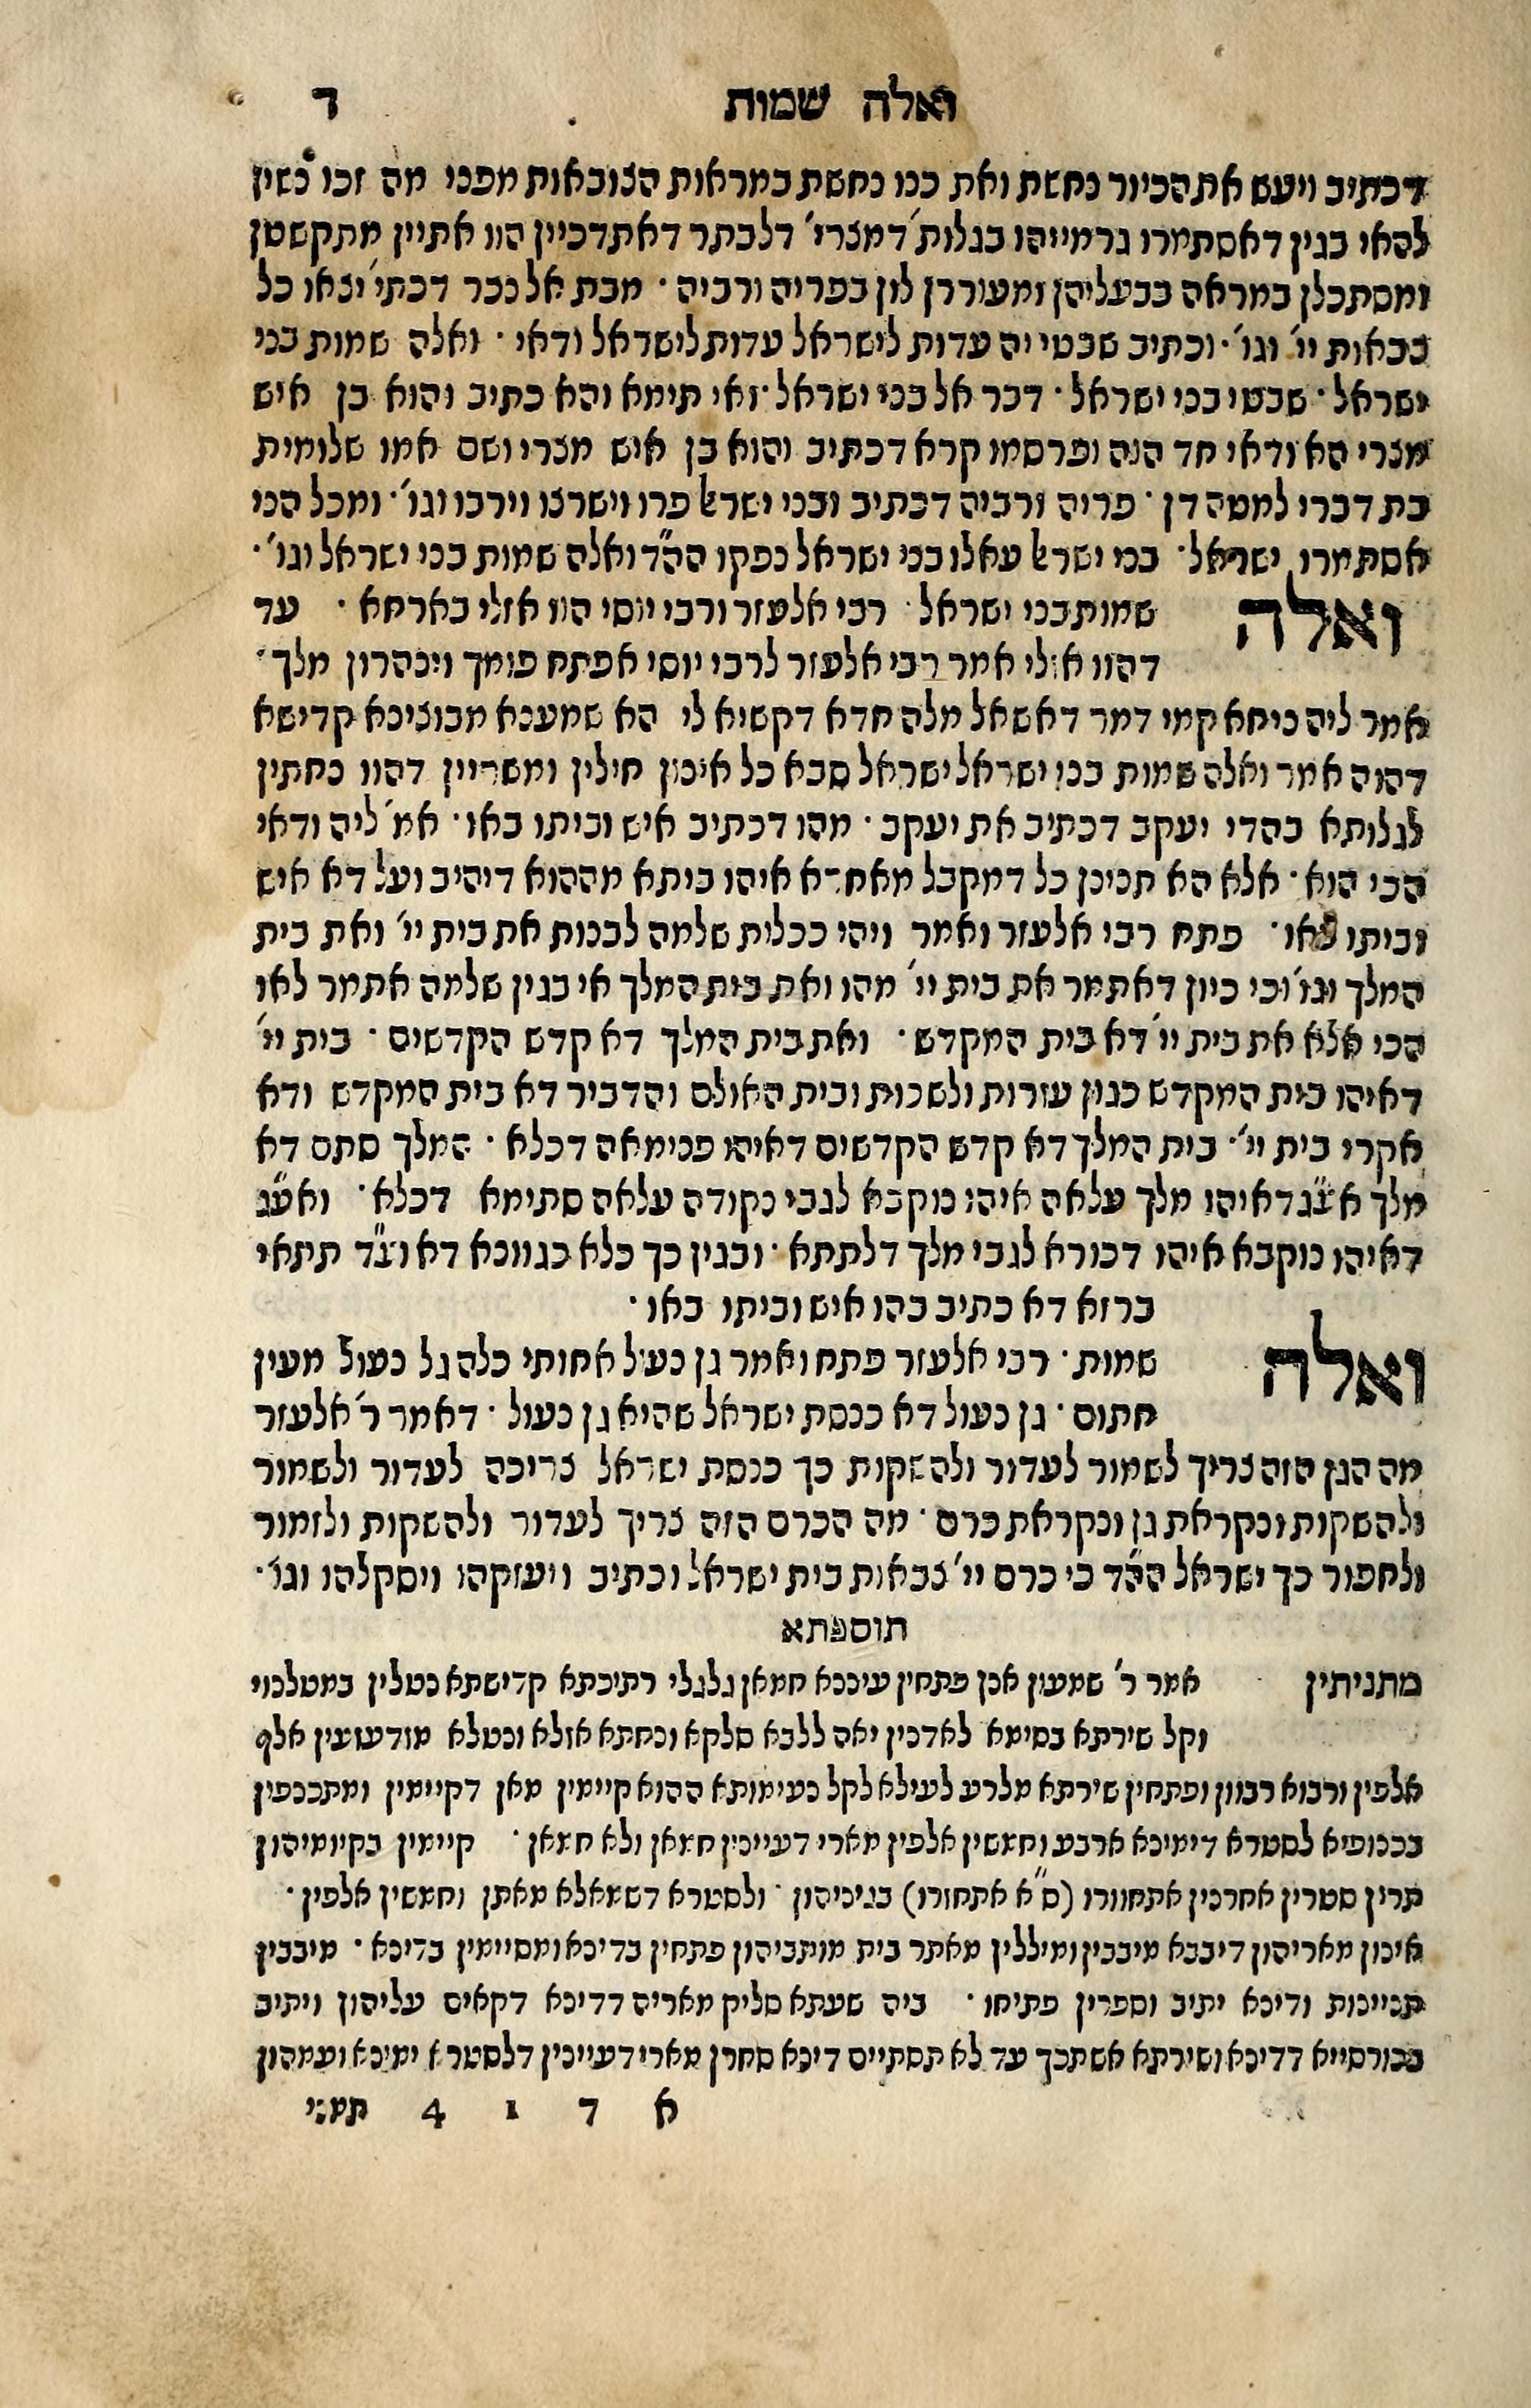 ואלה שמות ד
דכתיב ויעש את הכיור נחשת ואת כנו נחשת במראות הצובאות מפני מה זכו נשין
להאי בגין דאסתמרו גרמייהו בגלות' דמצרי' דלבתר דאתדכיין הוו אתיין מתקשטן
ומסתכלן במראה בבעליהן ומעוררן לון בפריה ורביה · מבת אל נכר דכתי' יצאו כל
צבאות יי' וגו' · וכתיב שבטי יה עדות לישראל עדות לישראל ודאי · ואלה שמות בני
ישראל · שבטי בני ישראל · דבר אל בני ישראל · ואי תימא והא כתיב והוא בן איש
מצרי הא ודאי חד הוה ופרסמו קרא דכתיב והוא בן איש מצרי ושם אמו שלומית
בת דברי למטה דן · פריה ורביה דכתיב ובני ישראל פרו וישרצו וירבו וגו' · ומכל הני
אסתמרו ישראל · בני ישראל עאלו בני ישראל נפקו הה"ד ואלה שמות בני ישראל וגו' ·
ואלה שמות בני ישראל · רבי אלעזר ורבי יוסי הוו אזלי בארחא · עד
דהוו אזלי אמר רבי אלעזר לרבי יוסי אפתח פומך וינהרון מלך ·
אמר ליה ניחא קמי דמר דאשאל מלה חדא דקשיא לי הא שמענא מבוצינא קדישא
דהוה אמר ואלה שמות בני ישראל ישראל סבא כל אינון חילין ומשריין דהוו נחתין
לגלותא בהדי יעקב דכתיב את יעקב · מהו דכתיב איש וביתו באו · אמ' ליה ודאי
הכי הוא · אלא הא תנינן כל דמקבל מאחרא איהו ביתא מההוא דיהיב ועל דא איש
וביתו באו · פתח רבי אלעזר ואמר ויהי ככלות שלמה לבנות את בית יי' ואת בית
המלך וגו' וכי כיון דאתמר את בית יי' מהו ואת בית המלך אי בגין שלמה אתמר לאו
הכי אלא את בית יי' דא בית המקדש · ואת בית המלך דא קדש הקדשים · בית יי'
דאיהו בית המקדש כגון עזרות ולשכות ובית האולם והדביר דא בית המקדש ודא
אקרי בית יי' · בית המלך דא קדש הקדשים דאיהו פנימאה דכלא · המלך סתם דא
מלך אע"ג דאיהו מלך עלאה איהו נוקבא לגבי נקודה עלאה סתימא דכלא · ואע"ג
דאיהו נוקבא איהו דכורא לגבי מלך דלתתא · ובגין כך כלא כגוונא דא וע"ד תתאי
ברזא דא כתיב בהו איש וביתו באו ·
ואלה שמות · רבי אלעזר פתח ואמר גן נעול אחותי כלה גל נעול מעין
חתום · גן נעול דא כנסת ישראל שהיא גן נעול · דאמר ר' אלעזר
מה הגן הזה צריך לשמור לעדור ולהשקות כך כנסת ישראל צריכה לעדור ולשמור
ולהשקות ונקראת גן ונקראת כרם · מה הכרם הזה צריך לעדור ולהשקות ולזמור
ולחפור כך ישראל הה"ד כי כרם יי' צבאות בית ישראל וכתיב ויעזקהו ויסקלהו וגו' ·
תוספתא
מתניתין אמר ר' שמעון אנן פתחין עיננא חמאן גלגלי רתיכתא קדישתא נטלין במטלנוי
וקל שירתא בסימא לאדנין יאה ללבא סלקא ונחתא אזלא ונטלא מזדעזעין אלף
אלפין ורבוא רבוון ופתחין שירתא מלרע לעילא לקל נעימותא ההוא קיימין מאן דקיימין ומתכנפין
בכנופיא לסטרא דימינא ארבע וחמשין אלפין מארי דעיינין חמאן ולא חמאן · קיימין בקיומיהון
תרין סטרין אחרנין אתחוורו (ס"א אתחזרו) בגיניהון · ולסטרא דשמאלא מאתן וחמשין אלפין ·
אינון מאריהון דיבבא מיבבין ומיללין מאתר בית מותביהון פתחין בדינא ומסיימין בדינא · מיבבין
תניינות ודינא יתיב וספרין פתיחו · ביה שעתא סליק מאריה דדינא דקאים עליהון ויתיב
בכורסייא דדינא ושירתא אשתכך עד לא תסתיים דינא סחרן מארי דעיינין דלסטרא ימינא ועמהון
א ד 1 4 תמני